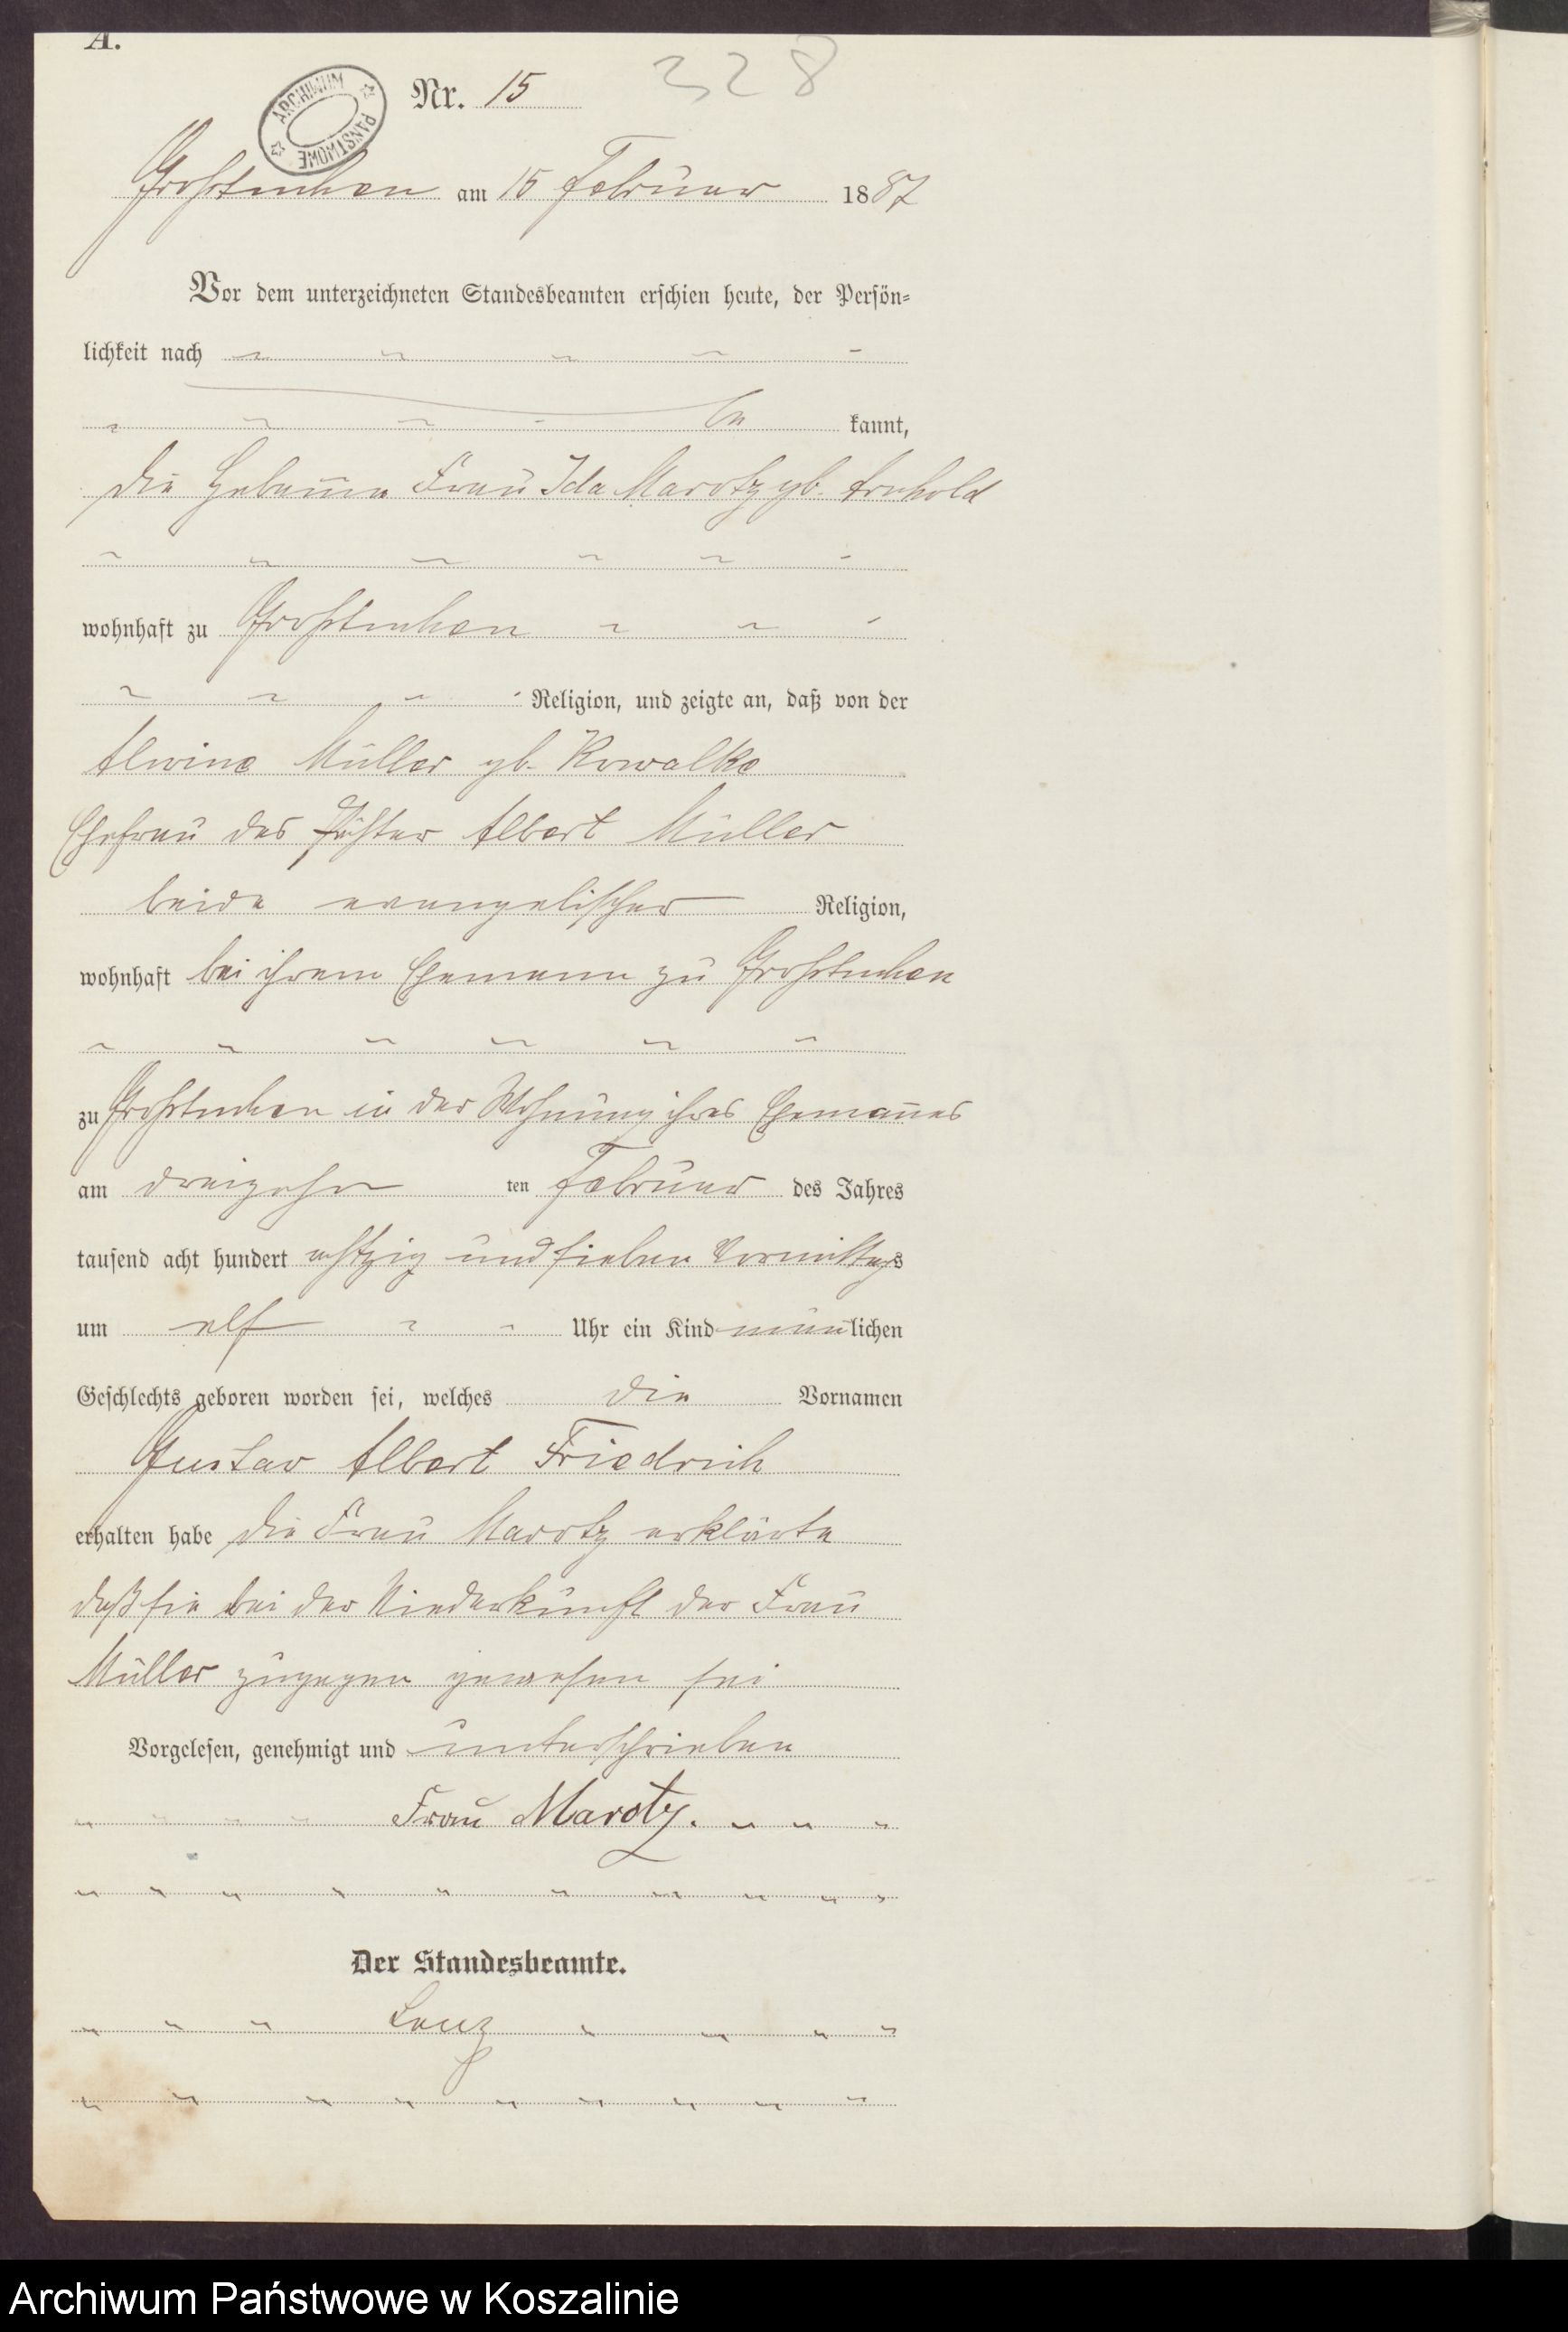 A.
ARCHIWUM PAŃSTWOWE
Nr. 15
328
Großtuchen am 15 Februar 1887
Vor dem unterzeichneten Standesbeamten erschien heute, der Persön-
lichkeit nach
be kannt,
die Hebeam̄e Frau Ida Marotz gb. Arnhold
wohnhaft zu Großtuchen
Religion, und zeigte an, daß von der
Alwine Müller gb. Kowalke
Ehefrau des Albert Müller
beide evangelischer Religion,
wohnhaft bei ihrem Ehemann zu Großtuchen
zu Großtuchen in der Wohnung ihres Eheman̄es
am dreizehn ten Februar des Jahres
tausend acht hundert achtzig und sieben Vormittags
um elf Uhr ein Kind män̄lichen
Geschlechts geboren worden sei, welches die Vornamen
Gustav Albert Friedrich
erhalten habe die Frau Marotz erklärte
daß sie bei der Niederkunft der Frau
Müller zugegen gewesen sei
Vorgelesen, genehmigt und unterschrieben
Frau Marotz.
Der Standesbeamte.
Lenz
Archiwum Państwowe w Koszalinie